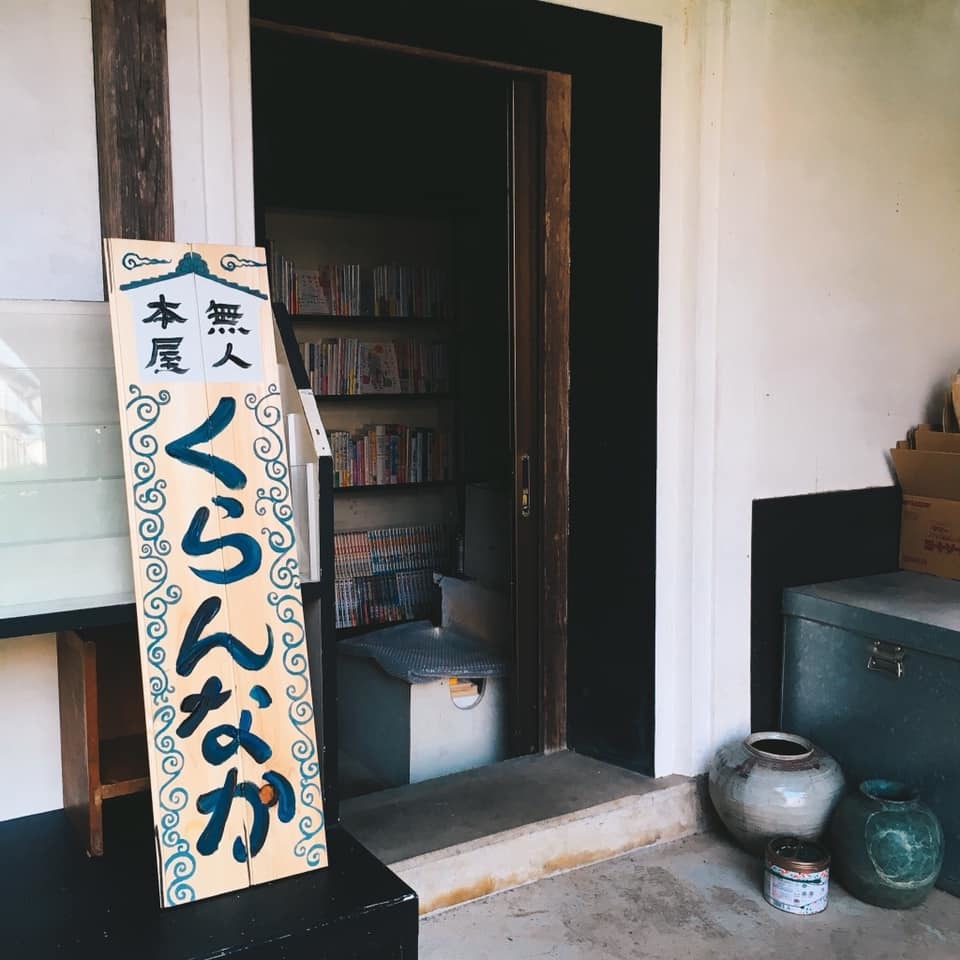 無人
本屋
くらんなか